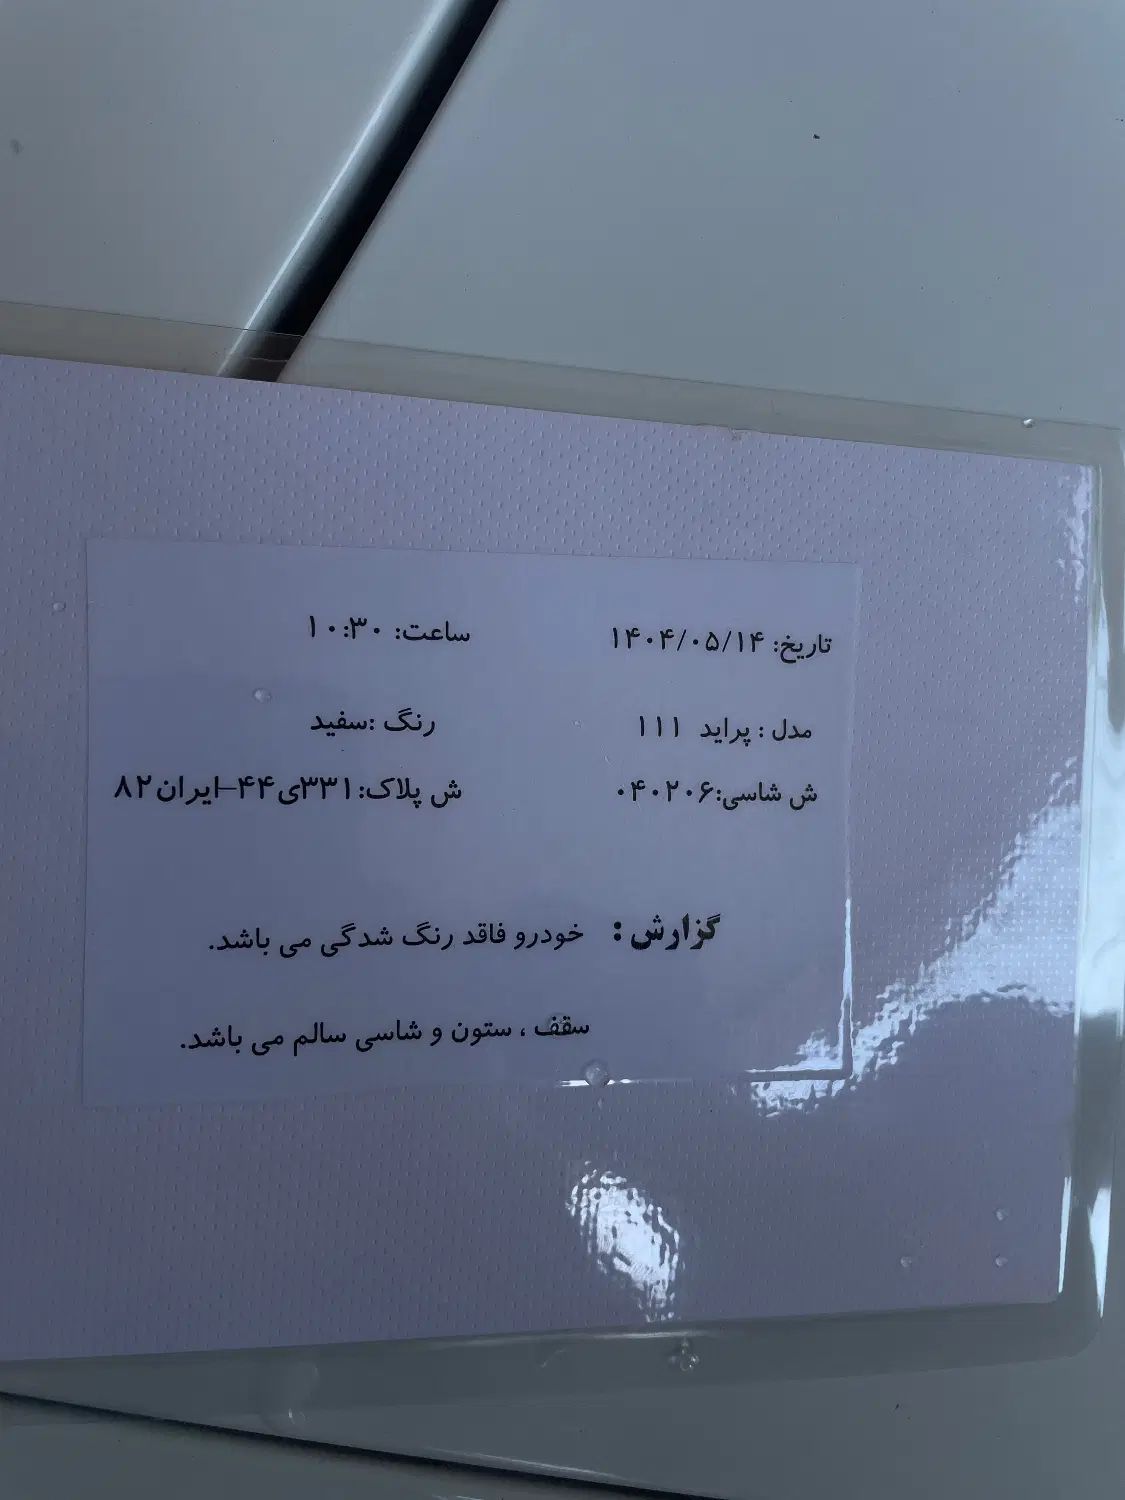 تاریخ: ۱۴۰۴/۰۵/۱۴ ساعت: ۱۰:۳۰
مدل : پراید ۱۱۱ رنگ :سفید
ش شاسی:۰۴۰۲۰۶ ش پلاک:۳۳۱ی۴۴–ایران۸۲
گزارش : خودرو فاقد رنگ شدگی می باشد.
سقف ، ستون و شاسی سالم می باشد.